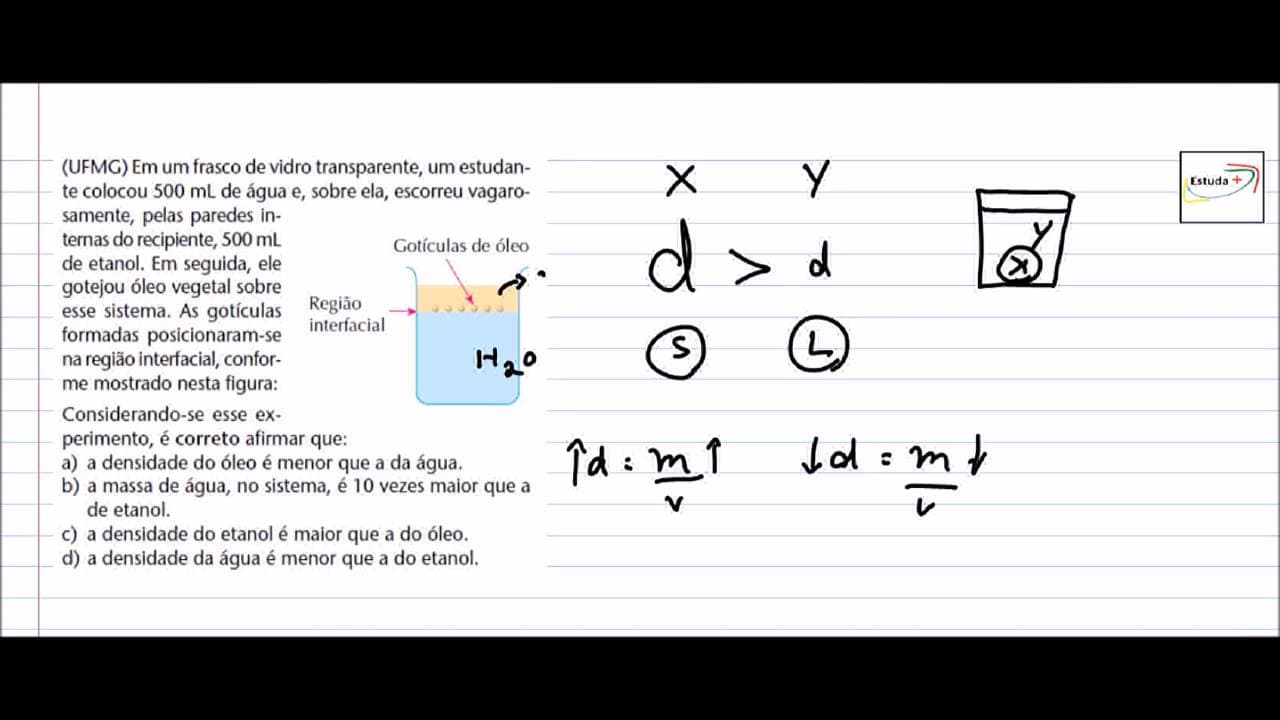 (UFMG) Em um frasco de vidro transparente, um estudan-
te colocou 500 mL de água e, sobre ela, escorreu vagaro-
samente, pelas paredes in-
ternas do recipiente, 500 mL
de etanol. Em seguida, ele
gotejou óleo vegetal sobre
esse sistema. As gotículas
formadas posicionaram-se
na região interfacial, confor-
me mostrado nesta figura:
Gotículas de óleo
Região
interfacial
H2O
Considerando-se esse ex-
perimento, é correto afirmar que:
a) a densidade do óleo é menor que a da água.
b) a massa de água, no sistema, é 10 vezes maior que a
de etanol.
c) a densidade do etanol é maior que a do óleo.
d) a densidade da água é menor que a do etanol.
X Y
d > d
S L
↑d = m↑
v
↓d = m↓
v
Y
X
Estuda +